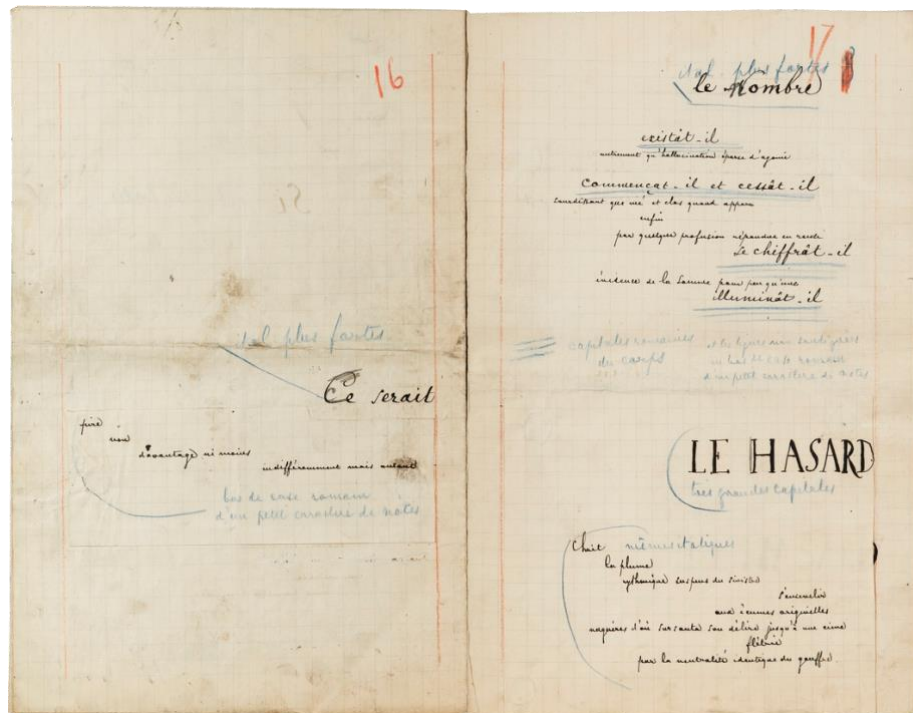 16
ital. plus fortes.
Ce serait
pire
non
davantage ni moins
indifféremment mais autant
bas de casse romain
d'un petit caractère de notes
17
ital. plus fortes
le nombre
existât-il
autrement qu'hallucination éparse d'agonie
commençât-il et cessât-il
sourdant que nié et clos quand apparu
enfin
par quelque profusion répandue en rareté
se chiffrât-il
évidence de la somme pour peu qu'une
illuminât-il
capitales romaines
du corps
et les lignes non soulignées
en bas de casse romain
d'un petit caractère de notes
LE HASARD
très grandes capitales
Choit
mêmes italiques
la plume
rythmique suspens du sinistre
s'ensevelir
aux écumes originelles
naguères d'où sursauta son délire jusqu'à une cime
flétrie
par la neutralité identique du gouffre